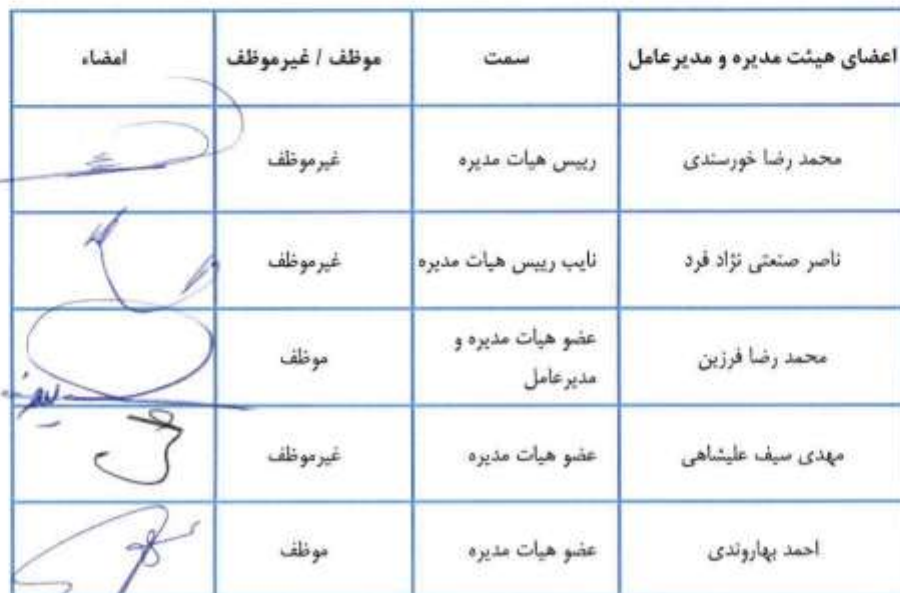 اعضای هیئت مدیره و مدیرعامل سمت موظف / غیرموظف امضاء
محمد رضا خورسندی رییس هیات مدیره غیرموظف
ناصر صنعتی نژاد فرد نایب رییس هیات مدیره غیرموظف
محمد رضا فرزین عضو هیات مدیره و
مدیرعامل موظف
مهدی سیف علیشاهی عضو هیات مدیره غیرموظف
احمد بهاروندی عضو هیات مدیره موظف